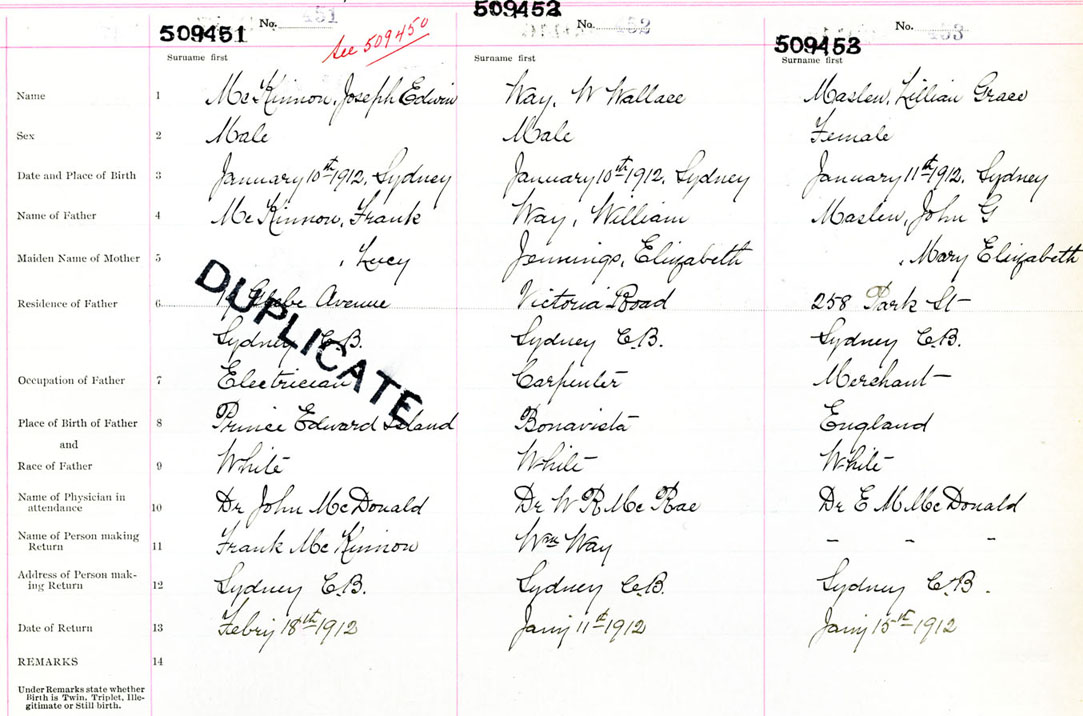 No. 451 No. 452 No. 453
509451 See 509450 509452 509453
Surname first Surname first Surname first
Name 1 McKinnon, Joseph Edwin Way, W Wallace Maslen, Lillian Grace
Sex 2 Male Male Female
Date and Place of Birth 3 January 10th 1912, Sydney January 10th 1912, Sydney January 11th 1912, Sydney
Name of Father 4 McKinnon, Frank Way, William Maslen, John G
Maiden Name of Mother 5 , Lucy Jennings, Elizabeth , Mary Elizabeth
Residence of Father 6 Glebe Avenue Victoria Road 258 Park St
Sydney C.B. Sydney C.B. Sydney C.B.
Occupation of Father 7 Electrician Carpenter Merchant
Place of Birth of Father 8 Prince Edward Island Bonavista England
and
Race of Father 9 White White White
Name of Physician in
attendance 10 Dr John McDonald Dr W R McRae Dr E M McDonald
Name of Person making
Return 11 Frank McKinnon Wm Way - - -
Address of Person mak-
ing Return 12 Sydney C.B. Sydney C.B. Sydney C.B.
Date of Return 13 Febry 18th 1912 Jany 11th 1912 Jany 15th 1912
REMARKS 14
Under Remarks state whether
Birth is Twin, Triplet, Ille-
gitimate or Still birth.
DUPLICATE